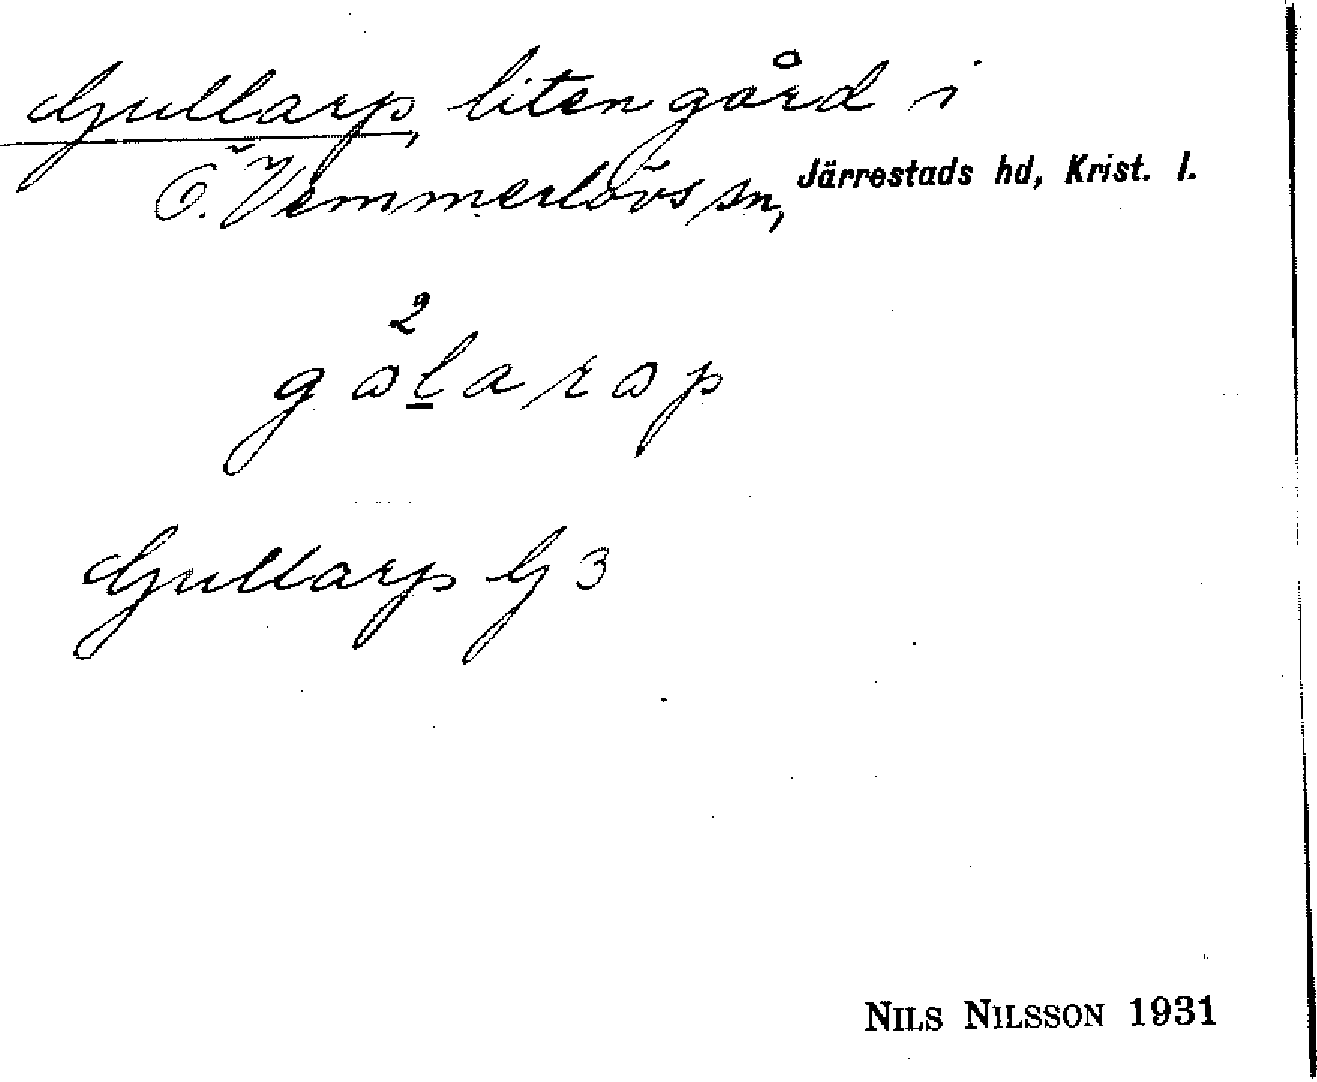 Gullarp, liten gård i
Ö. Vemmerlövs sn, Järrestads hd, Krist. l.
2
gɷlarɷp
Gullarp G 3
NILS NILSSON 1931